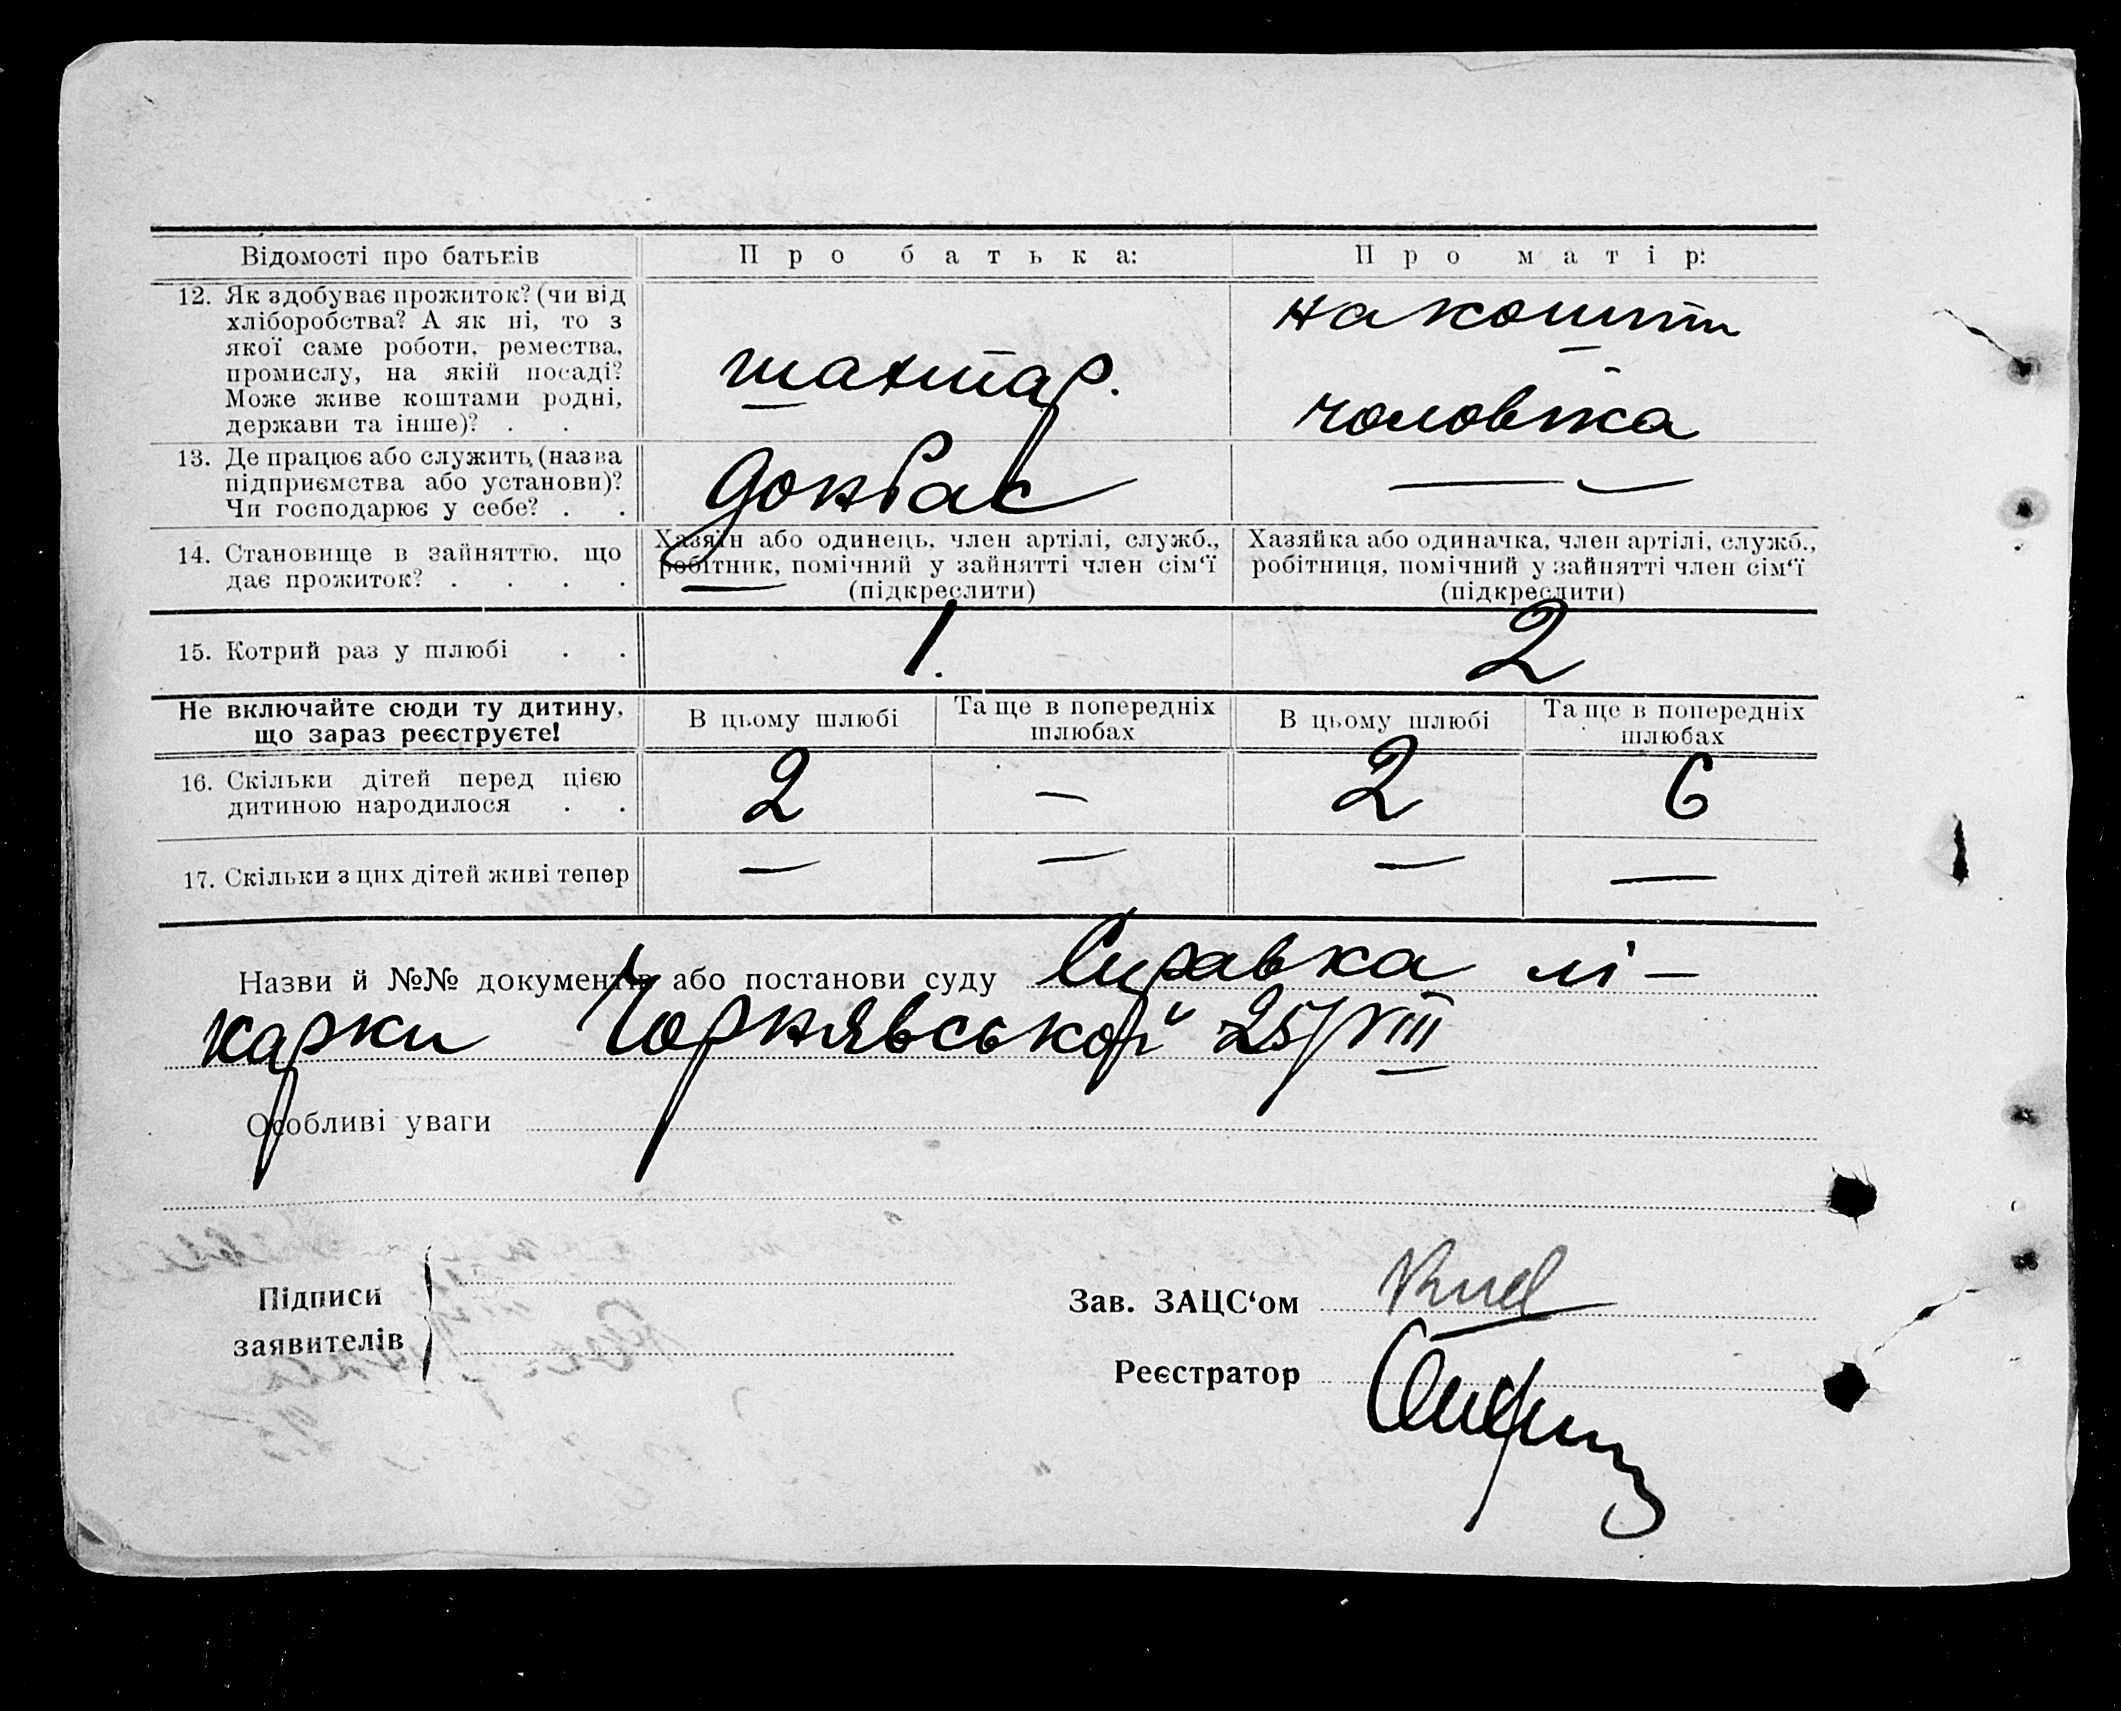 Відомості про батьків
Про батька:
Про матір:
12. Як здобуває прожиток? (чи від
хліборобства? А як ні, то з
якої саме роботи, ремества,
промислу, на якій посаді?
Може живе коштами родні,
держави та інше)? . .
шахтар.
на кошти
чоловіка
13. Де працює або служить, (назва
підприємства або установи)?
Чи господарює у себе? . .
Донбас
—
14. Становище в зайняттю, що
дає прожиток? . . . .
Хазяїн або одинець, член артілі, служб.,
робітник, помічний у зайнятті член сім‘ї
(підкреслити)
Хазяйка або одиначка, член артілі, служб.,
робітниця, помічний у зайнятті член сім‘ї
(підкреслити)
15. Котрий раз у шлюбі . .
1.
2
Не включайте сюди ту дитину,
що зараз реєструєте!
В цьому шлюбі
Та ще в попередніх
шлюбах
В цьому шлюбі
Та ще в попередніх
шлюбах
16. Скільки дітей перед цією
дитиною народилося . .
2
—
2
6
17. Скільки з цих дітей живі тепер
—
—
—
—
Назви й №№ документів або постанови суду Справка лі-
карки Чорнявської 25/VIII
Особливі уваги
Підписи
заявителів
Зав. ЗАЦС‘ом
Реєстратор